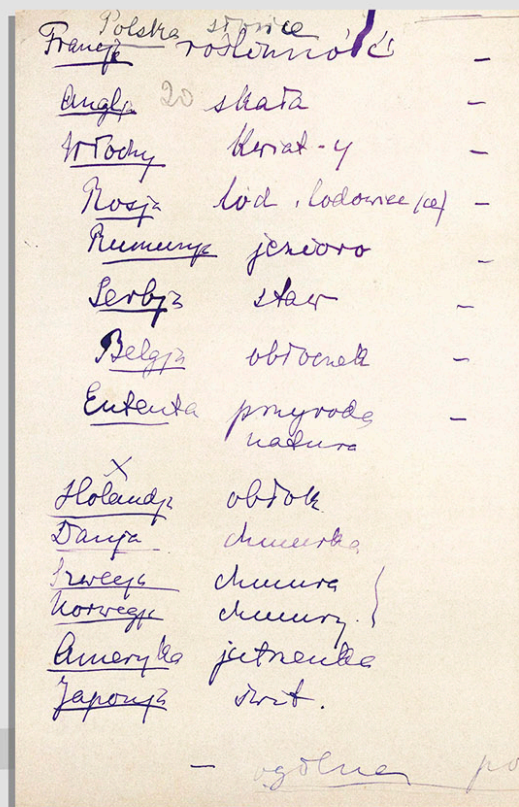 Polska słońce
Francja roślinność -
Anglja 20 skała -
Włochy Kwiat-y -
Rosja lód, lodowiec (ce) -
Rumunja jezioro -
Serbja staw -
Belgja obłoczek -
Ententa przyroda -
natura
X
Holandja obłok
Danja chmurka
Szwecja chmura
Norwegja chmury.
Ameryka jutrzenka
Japonja świt.
- ogólne po